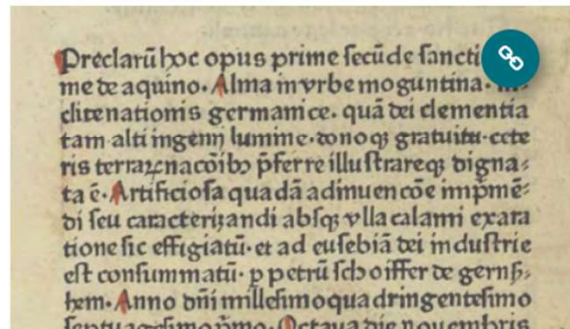 Preclarũ hoc opus prime secũde sancti
me de aquino. Alma in vrbe moguntina.
clite nationis germanice. quã dei clementia
tam alti ingenij lumine. donoqꝫ gratuitu. cete
ris terraꝝ nacõibꝰ p̃ferre illustrareqꝫ digna⸗
ta ẽ. Artificiosa quadã adinuencõe impmẽ⸗
di seu caracterizandi absqꝫ vlla calami exara
tione sic effigiatũ. et ad eusebiã dei industrie
est consummatũ. ꝑ petrũ schoiffer de gernsz⸗
hem. Anno dñi millesimoquadringentesimo
septuagesimop̃mo. Octaua die nouembris